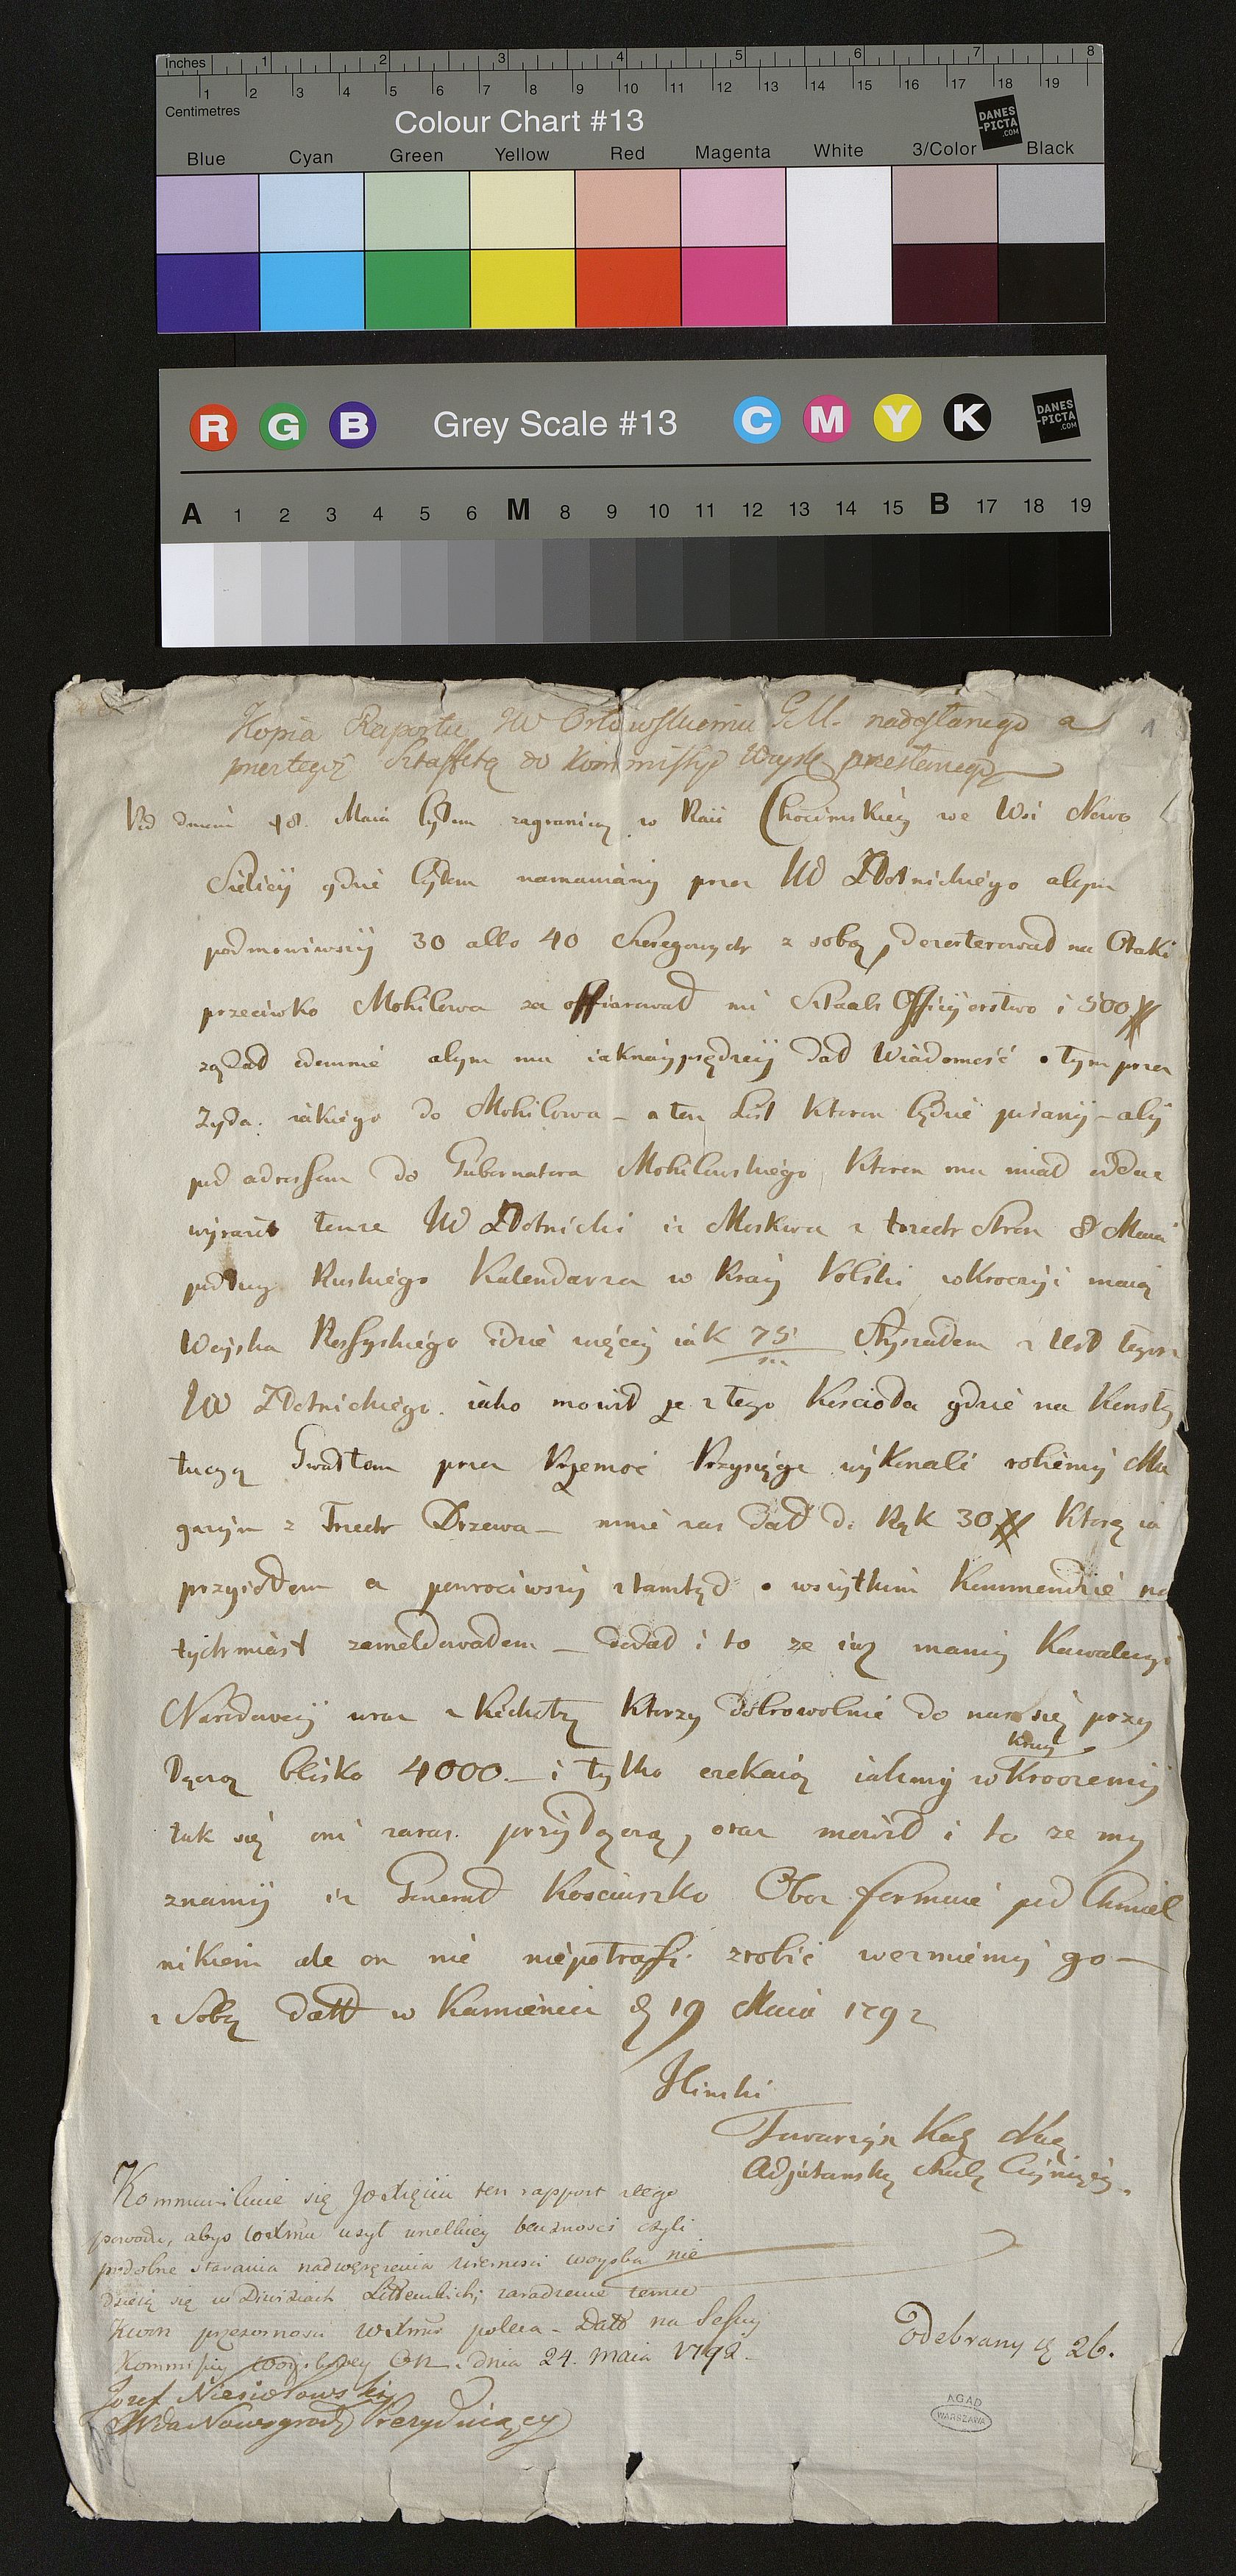 Inches 1 2 3 4 5 6 7 8
Centimetres 1 2 3 4 5 6 7 8 9 10 11 12 13 14 15 16 17 18 19
Colour Chart #13
DANES-PICTA.COM
Blue Cyan Green Yellow Red Magenta White 3/Color Black
R G B Grey Scale #13 C M Y K
DANES-PICTA.COM
A 1 2 3 4 5 6 M 8 9 10 11 12 13 14 15 B 17 18 19
Kopia Raportu JW Orłowskiemu G.M. nadesłanego a
przez tegoż Sztaffetą do Kommissyi Woysk. przesłanego
1
Pod dniem 18. Maia byłem zagranicą w Raii Chocimskiey we Wsi Nowo
Sielicy gdzie byłem namawiany przez JW Złotnickiego abym
podmowiwszy 30 albo 40 Szeregowych z sobą dezerterował na Otaki
przeciwko Mohilowa za offiarował mi Sztaabs Officyerstwo i 500
żądał odemnie abym mu iaknayprędzey dał Wiadomość o tym przez
Żyda iakiego do Mohilowa – a ten List ktoren będzie pisany – aby
pod adressem do Gubernatora Mohilowskiego ktoren mu miał oddac
wyraził tenze JW Złotnicki iz Moskwa z trzech Stron 8 Maia
podług Ruskiego Kalendarza w Kray Polski wkroczyi maią
Woyska Rossyiskiego idzie więcey iak 75 Słyszałem z Ust tegoz
JW Złotnickiego iako mowił ze z tego Koscioła gdzie na Konsty
tucyą Gwałtem przez Przemoc Przysięgę wykonali robiemy Ma
gazyn z Trzech Drzewa – mnie zas dał do Rąk 30 Ktorą ia
przyiołem a powrociwszy ztamtąd o wszytkim Kommendzie na
tychmiast zameldowałem – dodał i to ze iuz mamy Kawaleryi
Narodowey wraz z Piechotą Ktorzy dobrowolnie do nas się przy
Kray
łączą blisko 4000. – i tylko czekaią iak my wkroczemy
tak się oni zaraz przyłączą, oraz mowił i to ze my
znamy iz Generał Kosciuszko Oboz formuie pod Chmiel
nikiem ale on nic niepotraffi zrobić wezmiemy go –
z Sobą Datt w Kamieńcu d 19 Maia 1792
Ilinski
Towarzysz Kaw Nar
Kommunikuie się Jo Xięciu ten rapport z tego
powodu, abyś WXmść uzył wielkiey bacznosci czyli
podobne starania nadwęrężenia wiernosci woyska nie
dzieią się w Diwiziach Littewskich; zaradzenie temu
przezornosci WXmści poleca – Datt na Sessyi
Kommissyi Woyskowey ON. dnia 24. Maia 1792.
Jozef Niesiołowski
Wda Nowogrodz Prezyduiący
Odebrany d 26.
AGAD
WARSZAWA